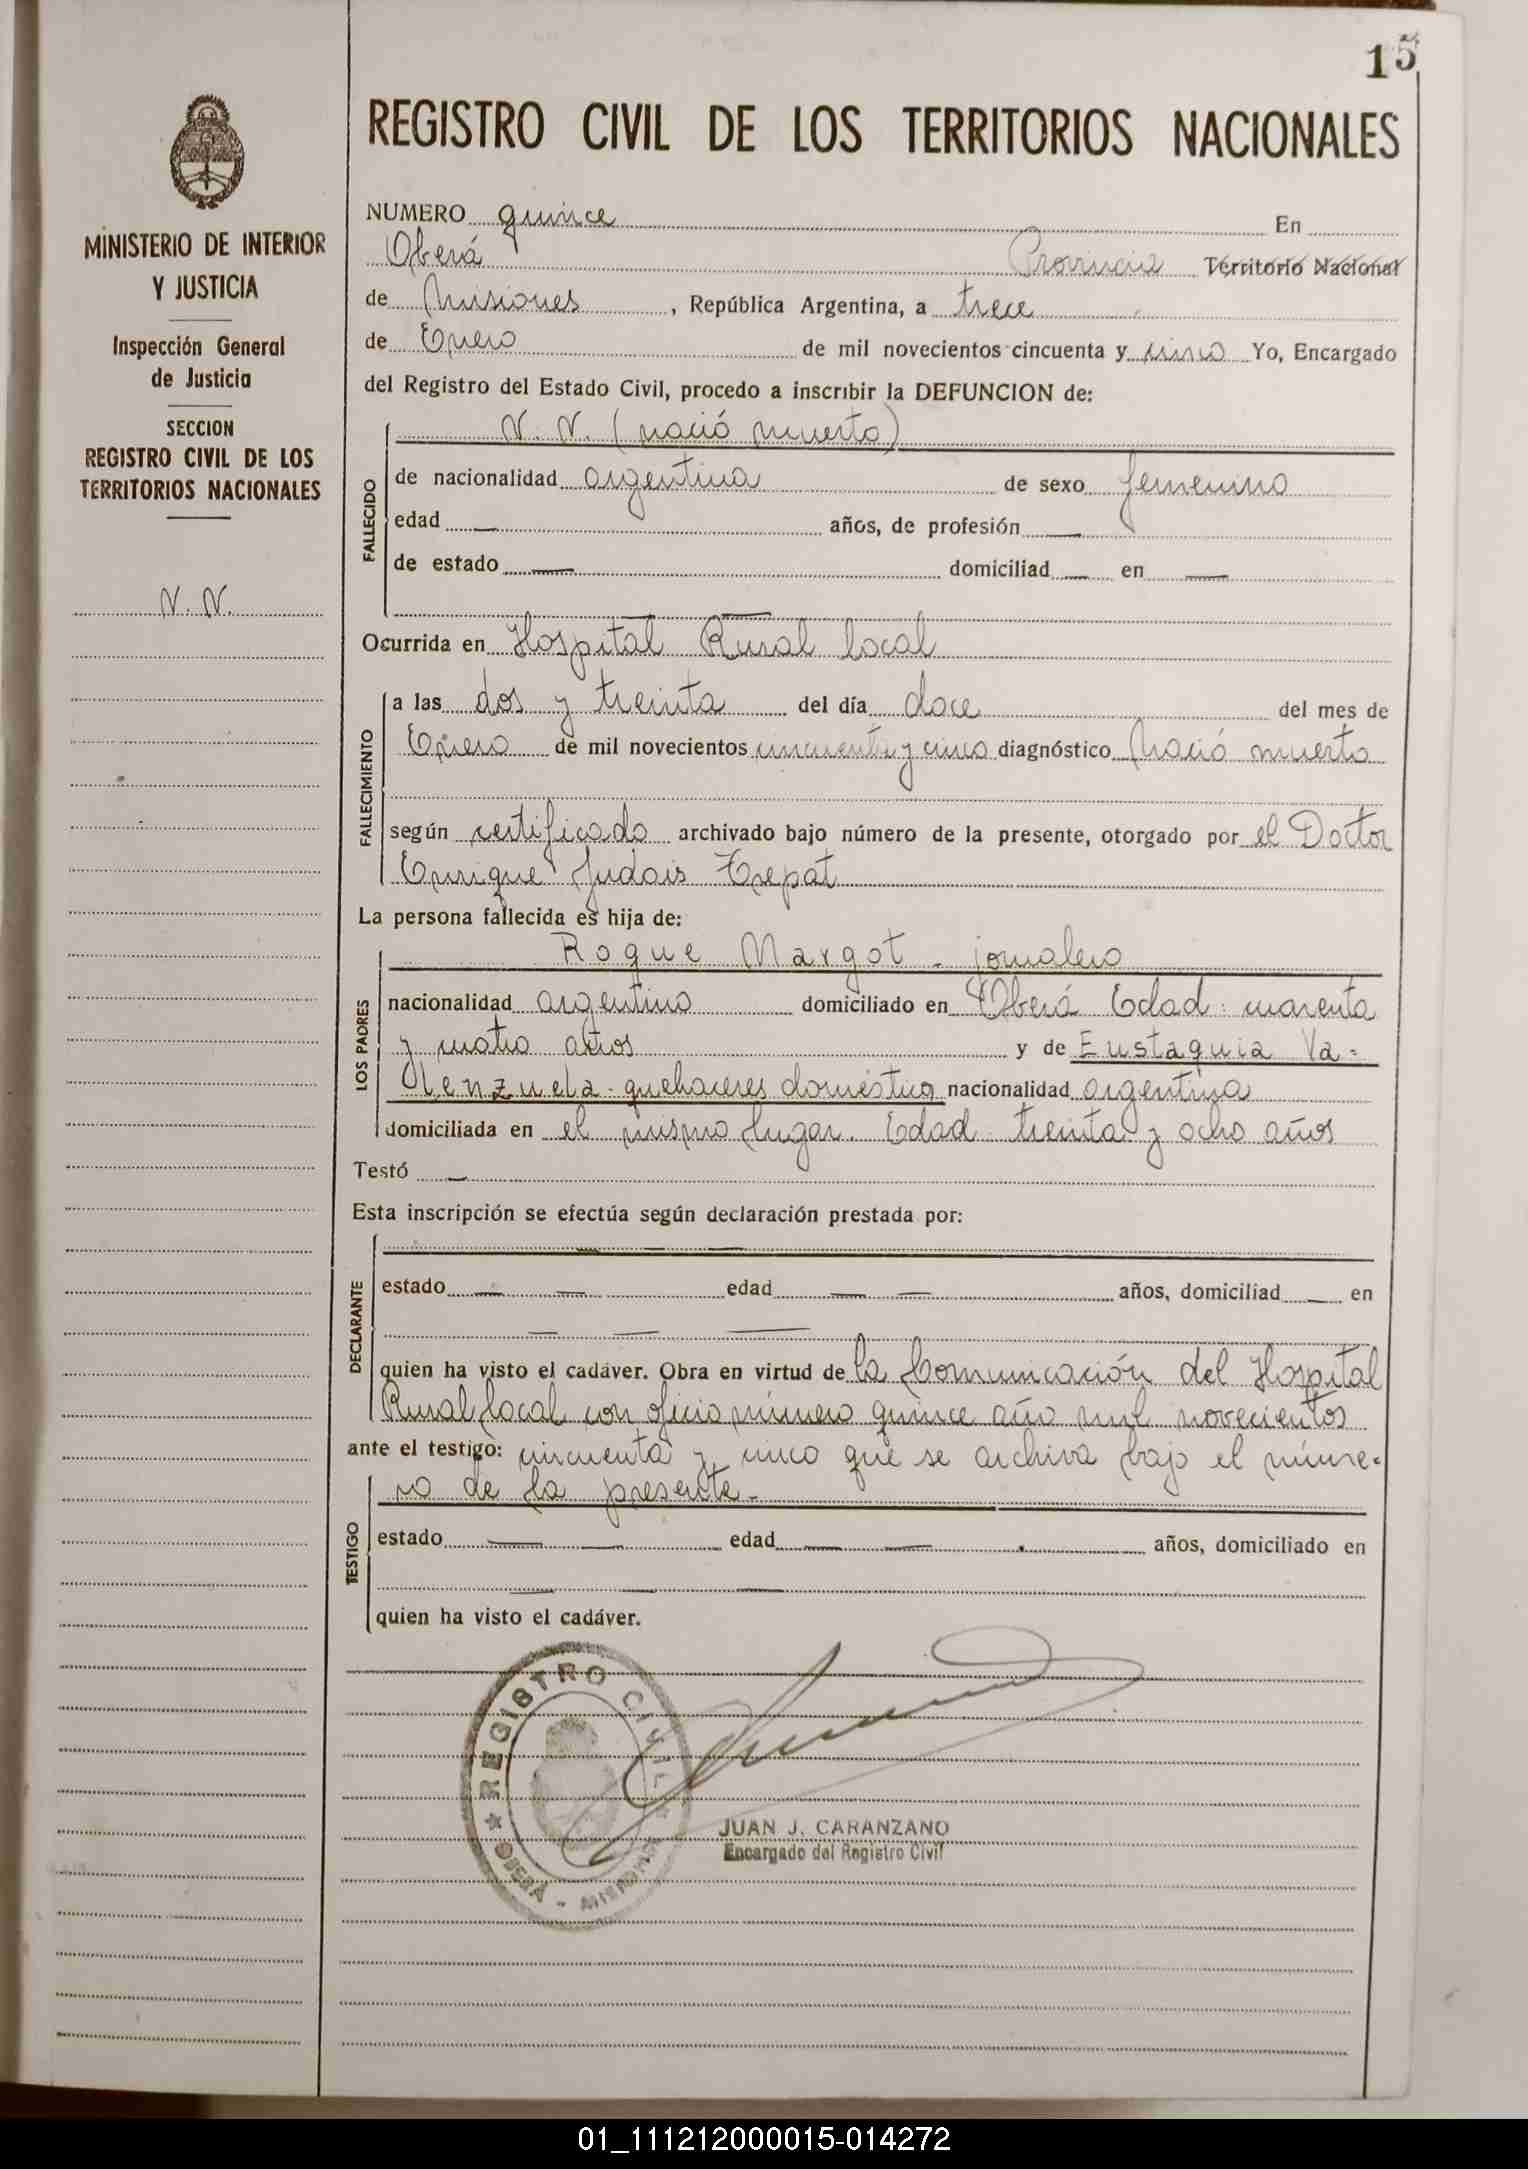 15
REGISTRO CIVIL DE LOS TERRITORIOS NACIONALES
MINISTERIO DE INTERIOR
Y JUSTICIA
Inspección General
de Justicia
SECCION
REGISTRO CIVIL DE LOS
TERRITORIOS NACIONALES
N. N.
NUMERO quince En
Oberá Provincia Territorio Nacional
de Misiones, República Argentina, a trece
de Enero de mil novecientos cincuenta y cinco Yo, Encargado
del Registro del Estado Civil, procedo a inscribir la DEFUNCION de:
N. N. (nació muerto)
FALLECIDO
de nacionalidad argentina de sexo femenino
edad — años, de profesión —
de estado — domiciliad — en —
—
Ocurrida en Hospital Rural local
FALLECIMIENTO
a las dos y treinta del día doce del mes de
Enero de mil novecientos cincuenta y cinco diagnóstico Nació muerto
según certificado archivado bajo número de la presente, otorgado por el Doctor
Enrique Judais Trepat
La persona fallecida es hija de:
LOS PADRES
Roque Margot - jornalero
nacionalidad argentino domiciliado en Oberá Edad: cuarenta
y cuatro años y de Eustaquia Va=
lenzuela - quehaceres doméstico nacionalidad argentina
domiciliada en el mismo lugar. Edad: treinta y ocho años
Testó —
Esta inscripción se efectúa según declaración prestada por:
DECLARANTE
— — —
estado — — edad — — años, domiciliad — en
— — —
quien ha visto el cadáver. Obra en virtud de la Comunicación del Hospital
Rural local con oficio número quince año mil novecientos
ante el testigo: cincuenta y cinco que se archiva bajo el núme-
ro de la presente.-
TESTIGO
estado — — edad — — años, domiciliado en
— — —
quien ha visto el cadáver.
REGISTRO CIVIL
OBERÁ -
JUAN J. CARANZANO
Encargado del Registro Civil
01_111212000015-014272